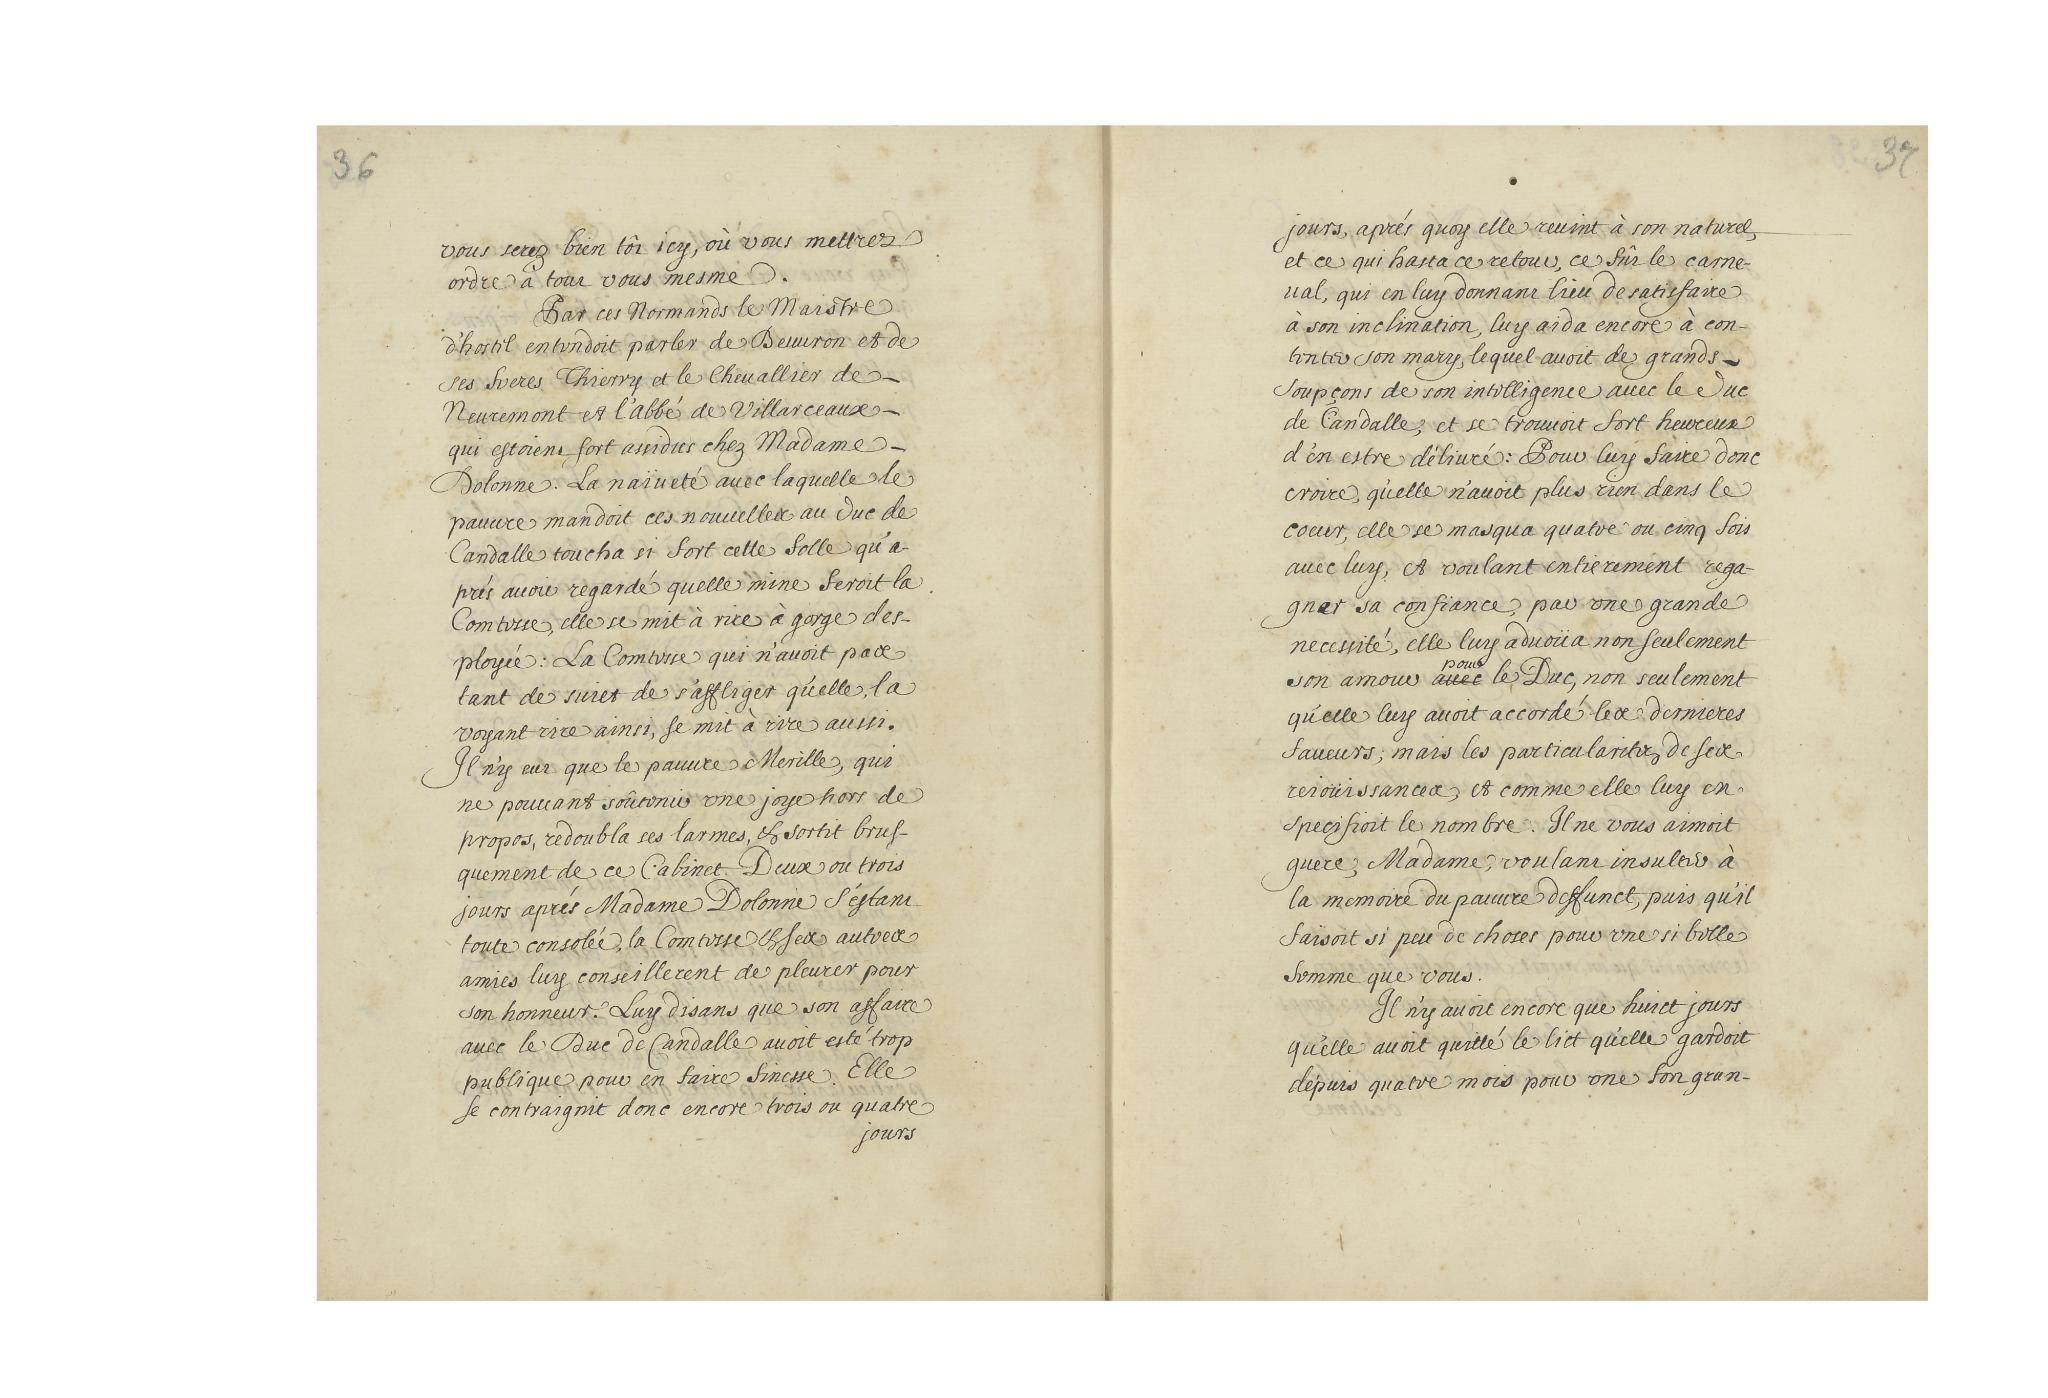 36
vous serez bien tôt icy, où vous mettrez
ordre à tout vous mesme.
Par ces Normands le Maistre
d'hostil entendoit parler de Beuuron et de
ses freres Thierry et le Cheuallier de
Neuremont et l'Abbé de Villarceaux
qui estoient fort assidus chez Madame
Dolonne. La naïueté auec laquelle le
pauure mandoit ces nouuelles au Duc de
Candalle toucha si fort cette folle qu'a-
prés auoir regardé quelle mine feroit la
Comtesse, elle se mit à rire à gorge des-
ployée: La Comtesse qui n'auoit pas
tant de suiet de s'affliger qu'elle, la
voyant rire ainsi, se mit à rire aussi.
Il n'y eut que le pauure Merille, qui
ne pouuant soûtenir vne joye hors de
propos, redoubla ses larmes, & sortit brus-
quement de ce Cabinet. Deux ou trois
jours aprés Madame Dolonne s'éstant
toute consolée, la Comtesse & ses autres
amies luy conseillerent de pleurer pour
son honneur. Luy disans que son affaire
auec le Duc de Candalle auoit esté trop
publique pour en faire finesse. Elle
se contraignit donc encore trois ou quatre
jours
37
jours, aprés quoy elle reuint à son naturel,
et ce qui hasta ce retour, ce fût le carne-
ual, qui en luy donnant lieu de satisfaire
à son inclination, luy aida encore à con-
tenter son mary, lequel auoit de grands
soupçons de son intelligence auec le Duc
de Candalle, et se trouuoit fort heureux
d'en estre déliuré: Pour luy faire donc
croire, qu'elle n'auoit plus rien dans le
coeur, elle se masqua quatre ou cinq fois
auec luy, et voulant entierement rega-
gner sa confiance, par vne grande
necessité, elle luy aduoüa non seulement
pour
son amour auec le Duc, non seulement
qu'elle luy auoit accordé les dernieres
faueurs; mais les particularitez de ses
reioüissances, et comme elle luy en
specifioit le nombre. Il ne vous aimoit
guere, Madame, voulant insulter à
la memoire du pauure deffunct, puis qu'il
faisoit si peu de choses pour vne si belle
femme que vous.
Il n'y auoit encore que huict jours
qu'elle auoit quitté le lict qu'elle gardoit
depuis quatre mois pour vne fon gran-